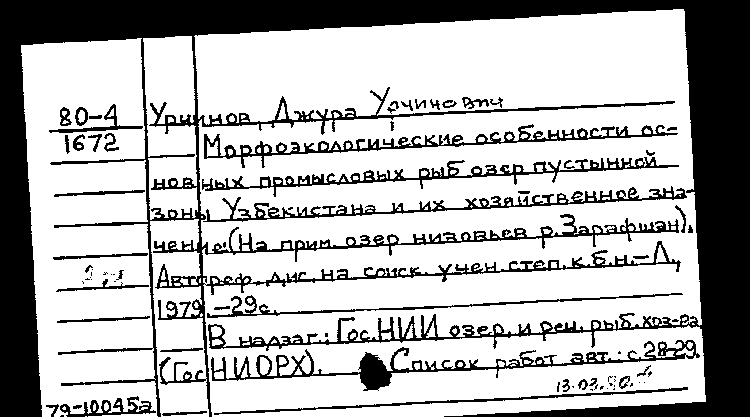 80-4 Урчинов, Джура Урчинович
1672 Морфоэкологические особенности ос-
новных промысловых рыб озер пустынной
зоны Узбекистана и их хозяйственное зна-
чение. (На прим. озер низовьев р. Зарафшан).
Автореф. дис. на соиск. учен. степ. к.б.н. - Л.,
1979. - 29с.
В надзаг.: Гос. НИИ озер. и реч. рыб. хоз-ва
(ГосНИОРХ). Список работ авт.: с. 28-29.
13.03.80.
79-10045а